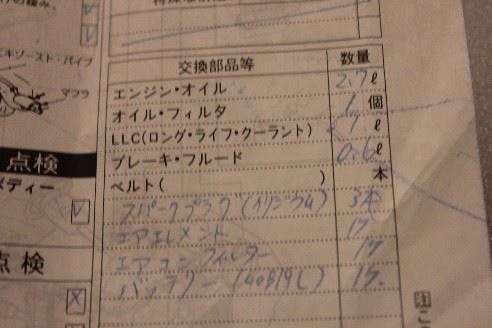 エキゾースト・パイプ
マフラ
点検
ボディー
点検
交換部品等 数量
エンジン・オイル 2.7ℓ
オイル・フィルタ 1個
LLC(ロング・ライフ・クーラント) ℓ
ブレーキ・フルード 0.6ℓ
ベルト( ) 本
スパークプラグ(イリジウム) 3本
エアエレメント 1ケ
エアコンフィルター 1ケ
バッテリー(40B19L) 1ケ